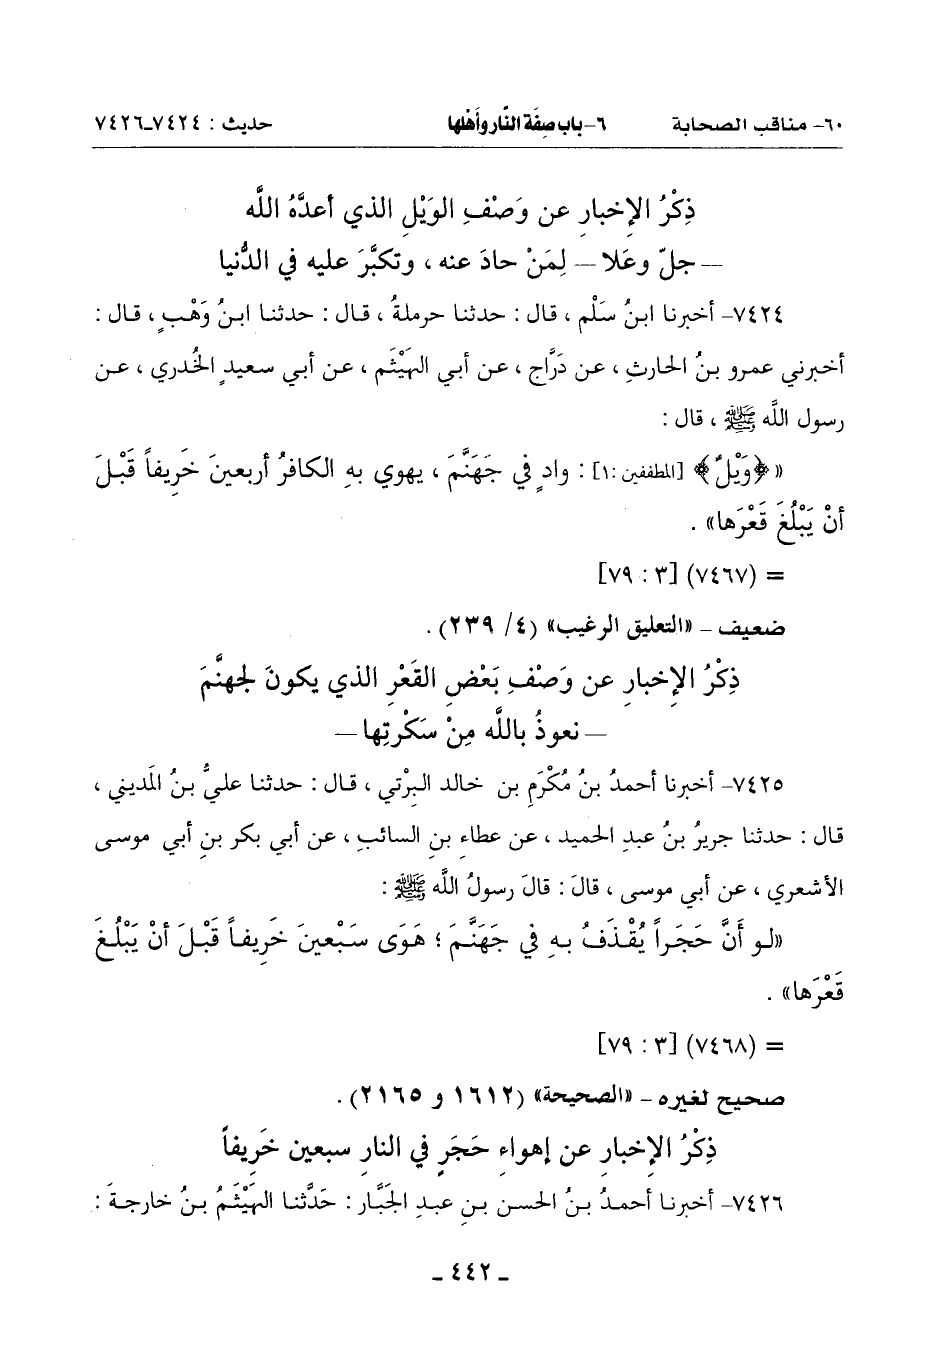 ٦٠- مناقب الصحابة ٦-باب صِفَة النَّار وأهْلها حديث : ٧٤٢٤-٧٤٢٦
ذِكْرُ الإخبارِ عن وَصْفِ الوَيْلِ الذي أعدَّهُ اللَّه
— جلّ وعَلا — لِمَنْ حادَ عنه ، وتكبَّرَ عليه في الدُّنيا
٧٤٢٤- أخبرنا ابنُ سَلْم ، قال : حدثنا حرملةُ ، قال : حدثنا ابنُ وَهْبٍ ، قال :
أخبرني عمرو بنُ الحارثِ ، عن دَرَّاجٍ ، عن أبي الهَيْثَم ، عن أبي سعيدٍ الخُدري ، عن
رسول اللَّه ﷺ ، قال :
«﴿وَيْلٌ﴾ [المطففين :١] : وادٍ في جَهَنَّمَ ، يهوي بهِ الكافرُ أربعينَ خَرِيفاً قَبْلَ
أنْ يَبْلُغَ قَعْرَها» .
= (٧٤٦٧) [٣ : ٧٩]
ضعيف – «التعليق الرغيب» (٤/ ٢٣٩) .
ذِكْرُ الإخبارِ عن وَصْفِ بَعْضِ القَعْرِ الذي يكونَ لجهنَّمَ
– نعوذُ باللَّه مِنْ سَكْرتِها –
٧٤٢٥- أخبرنا أحمدُ بنُ مُكْرَمِ بن خالد البِرْتي ، قال : حدثنا عليُّ بنُ المَديني ،
قال : حدثنا جريرُ بنُ عبدِ الحميد ، عن عطاءِ بنِ السائبِ ، عن أبي بكر بنِ أبي موسى
الأشعري ، عن أبي موسى ، قالَ : قالَ رسولُ اللَّه ﷺ :
«لو أَنَّ حَجَراً يُقْذَفُ به في جَهَنَّمَ ؛ هَوَى سَبْعينَ خَرِيفاً قَبْلَ أنْ يَبْلُغَ
قَعْرَها» .
= (٧٤٦٨) [٣ : ٧٩]
صحيح لغيره – «الصحيحة» (١٦١٢ و ٢١٦٥) .
ذِكْرُ الإخبارِ عن إهواءِ حَجَرٍ في النارِ سبعين خَرِيفاً
٧٤٢٦- أخبرنا أحمدُ بنُ الحسن بنِ عبدِ الجَبَّار : حَدَّثنا الهَيْثَمُ بنُ خارجةَ :
- ٤٤٢ -